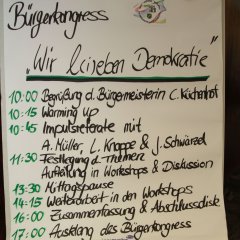 Bürgerkongress
"Wir lieben Demokratie"
10:00 Begrüßung d. Bürgermeisterin C. Küchenhof
10:15 Warming up
10:45 Impulsreferate mit
A. Müller, L. Knoppe & J. Schwarzel
11:30 Festlegung d. Themen
Aufteilung in Workshops & Diskussion
13:30 Mittagspause
14:15 Weiterarbeit in den Workshops
16:00 Zusammenfassung & Abschlussdisk
17:00 Ausklang des Bürgerkongress